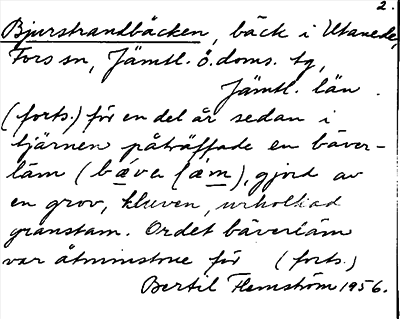 2.
Bjurstrandbäcken, bäck i Utanede,
Fors sn, Jämtl. ö. doms. tg,
Jämtl. län.
(forts.) för en del år sedan i
tjärnen påträffade en bäver-
läm (bäva läm), gjord av
en grov, kluven, urholkad
granstam. Ordet bäverläm
var åtminstone för (forts.)
Bertil Flemström 1956.